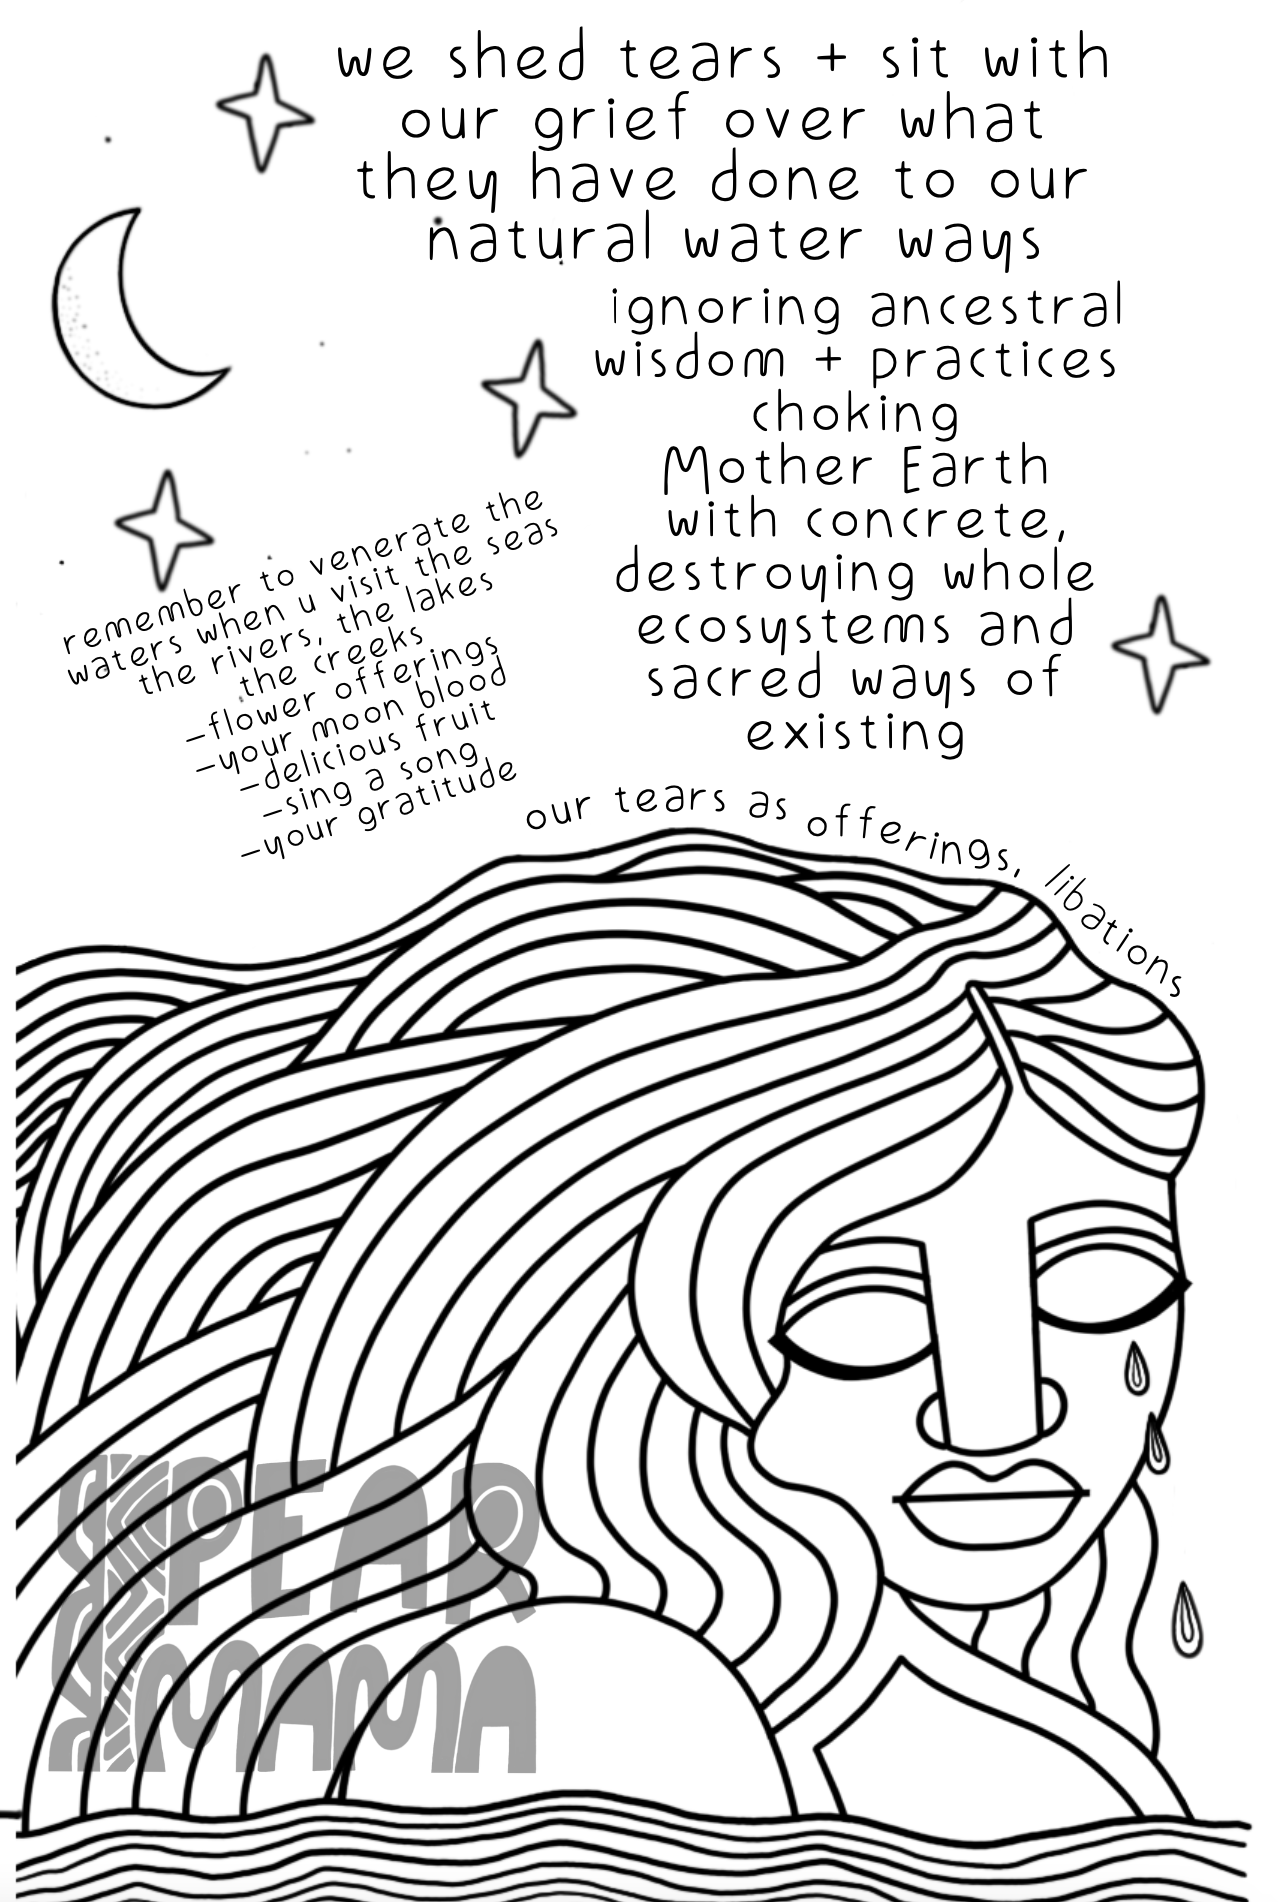 we shed tears + sit with
our grief over what
they have done to our
natural water ways
ignoring ancestral
wisdom + practices
choking
Mother Earth
with concrete,
destroying whole
ecosystems and
sacred ways of
existing
remember to venerate the
waters when u visit the seas
the rivers, the lakes
the creeks
-flower offerings
-your moon blood
-delicious fruit
-sing a song
-your gratitude
our tears as offerings, libations
PEAR
MAMA